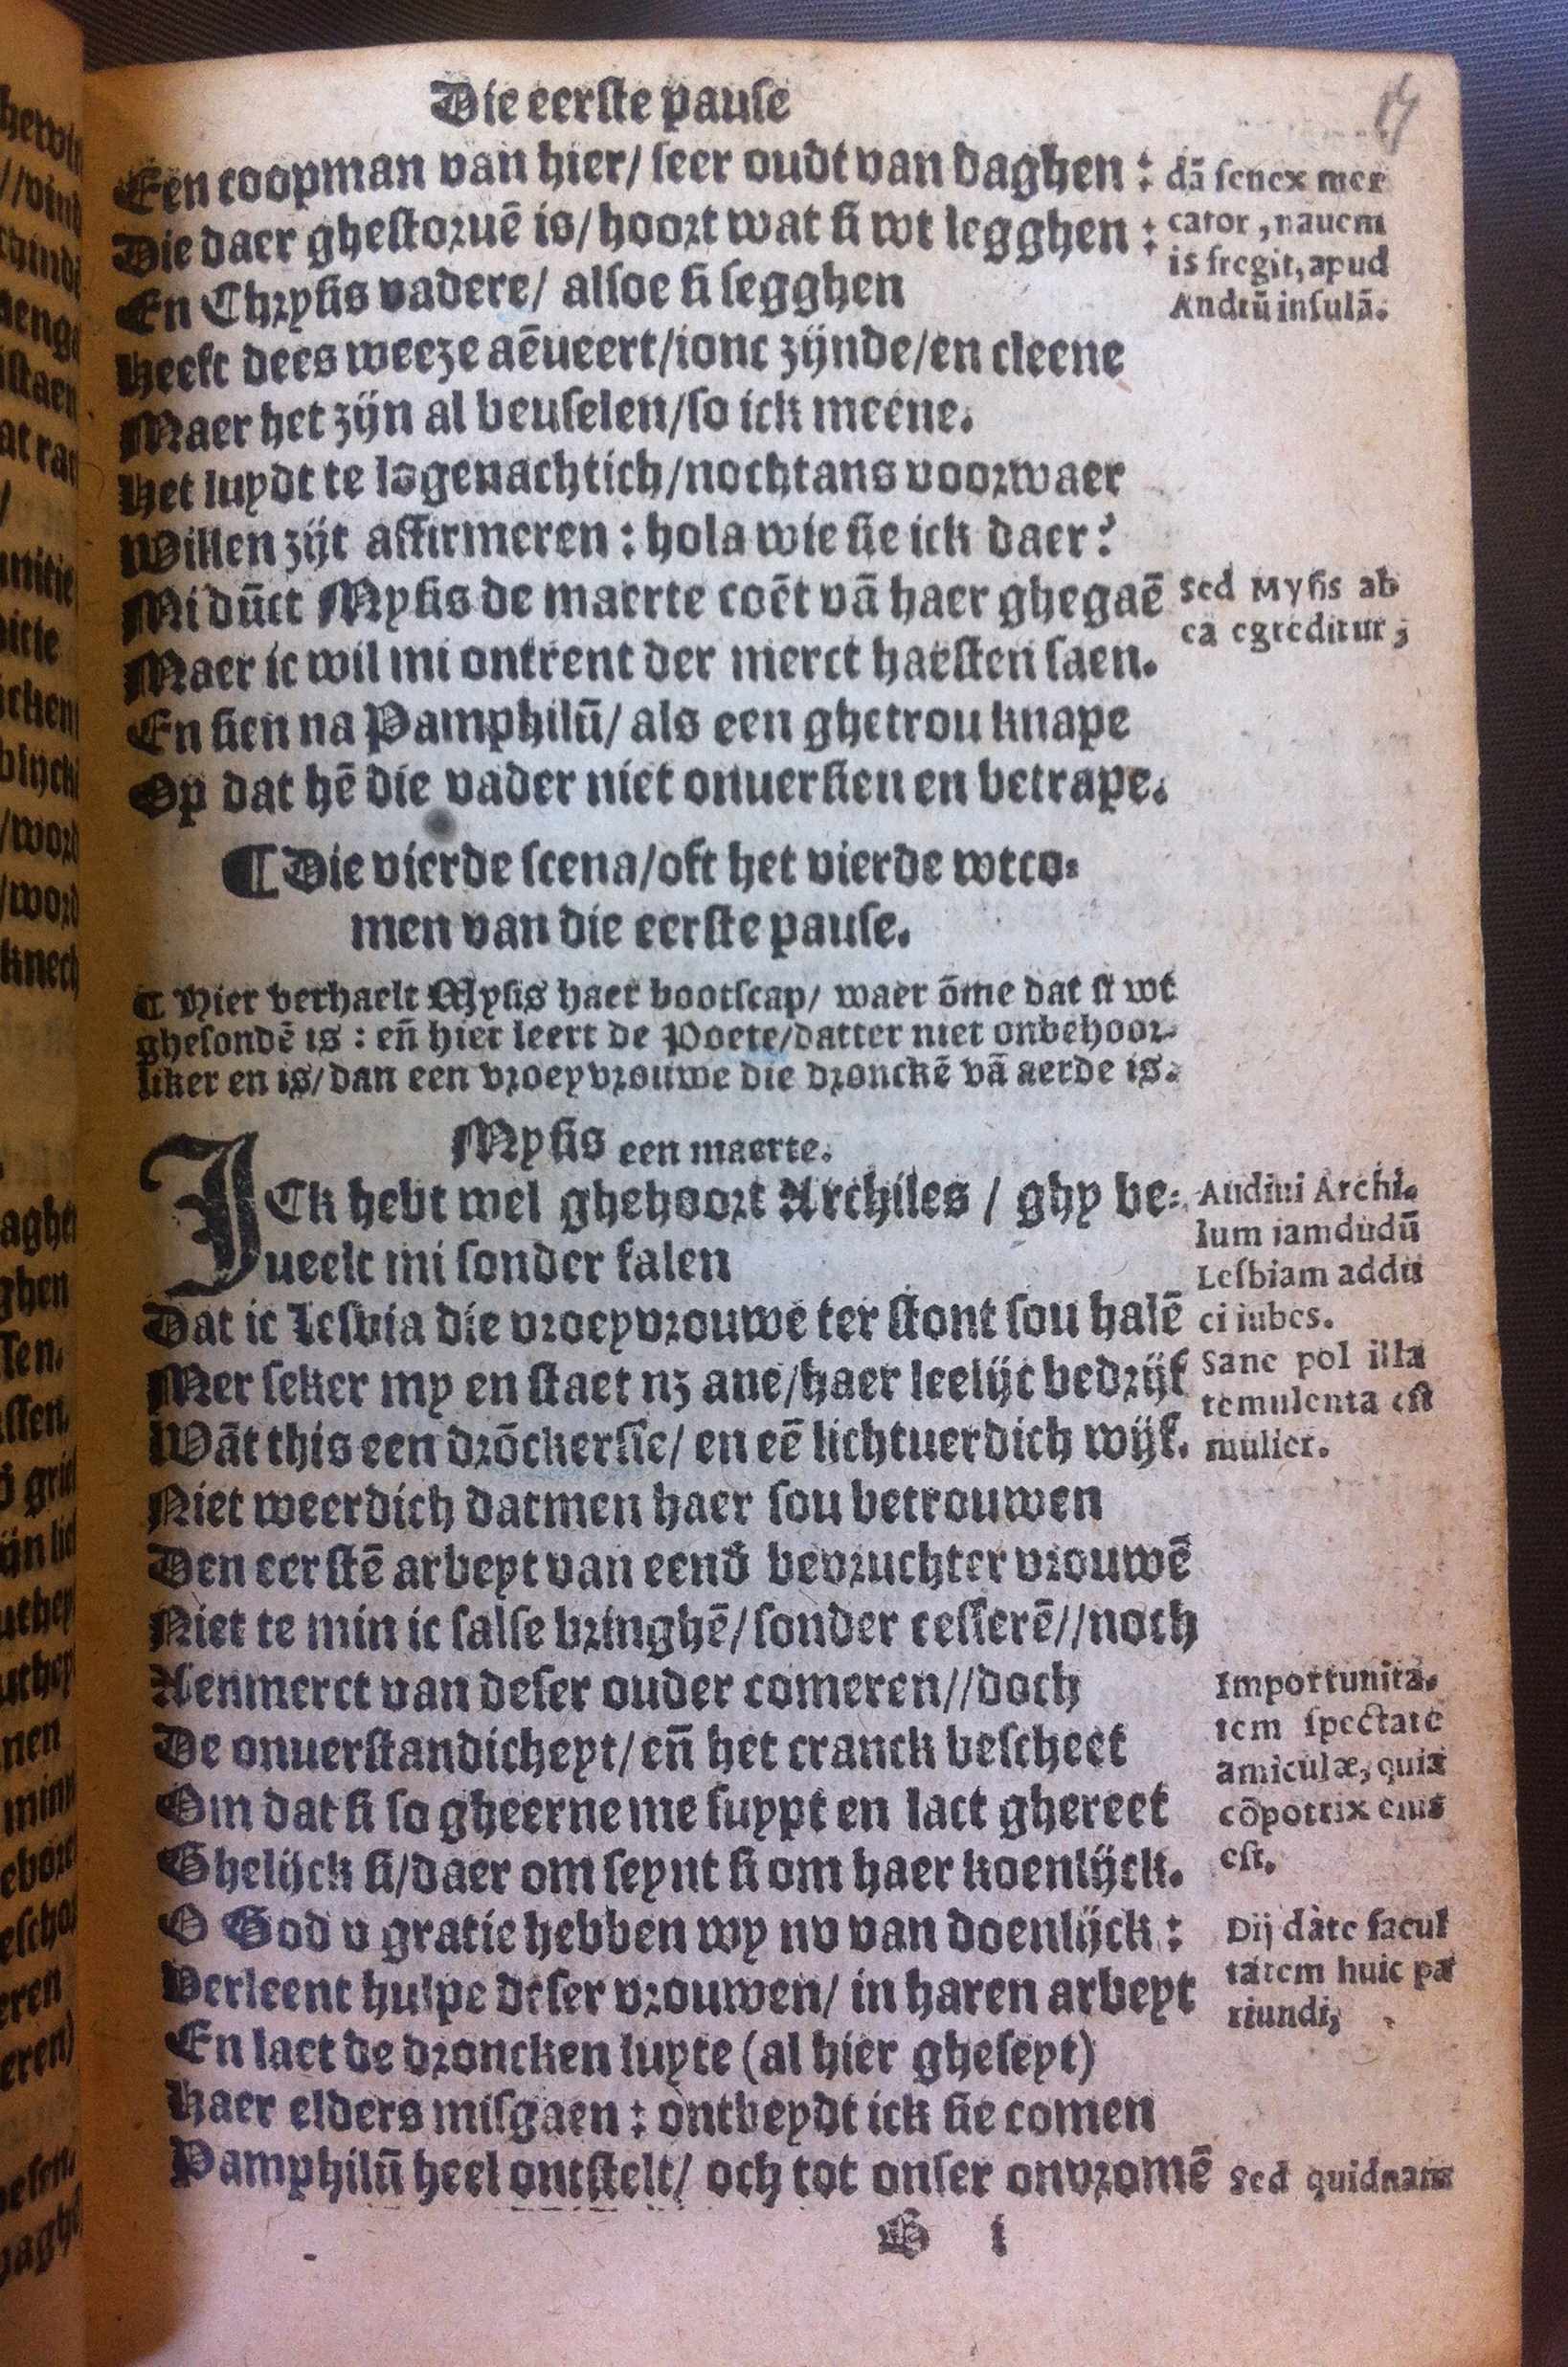 Die eerste pause
Een coopman van hier/ seer oudt van daghen :
Die daer ghestoruē is/ hoort wat si wt legghen :
En Chrysis vadere/ alsoe si segghen
Heeft dees weeze aēueert/ionc zijnde/en cleene
Maer het zijn al beuselen/so ick meene.
Het luydt te lōgenachtich/nochtans voorwaer
Willen zijt affirmeren : hola wie sie ick daer?
Mi dūct Mysis de maerte coēt vā haer ghegaē
Maer ic wil mi ontrent der merct haesten saen.
En sien na Pamphilū/ als een ghetrou knape
Op dat hē die vader niet onuersien en betrape.
dā senex mer
cator , nauem
is fregit, apud
Andrū insulā.
Sed Mysis ab
ea egreditur ;
¶ Die vierde scena/oft het vierde wtco-
men van die eerste pause.
¶ Hier verhaelt Mysis haer bootscap/ waer ōme dat si wt
ghesondē is : eñ hier leert de Poete/datter niet onbehoor-
liker en is/ dan een vroeyvrouwe die dronckē vā aerde is.
Mysis een maerte.
ICk hebt wel ghehoort Archiles / ghy be-
ueelt mi sonder falen
Dat ic Lesbia die vroeyvrouwe ter stont sou halē
Mer seker my en staet nz ane/haer leelijc bedrijf
Wāt this een drōckersse/ en eē lichtuerdich wijf.
Niet weerdich datmen haer sou betrouwen
Den eerstē arbeyt van eenď bevruchter vrouwē
Niet te min ic salse bringhē/sonder cesserē//noch
Aenmerct van deser ouder comeren//doch
De onuerstandicheyt/eñ het cranck bescheet
Om dat si so gheerne me suypt en laet ghereet
Ghelijck si/daer om seynt si om haer koenlijck.
O God v gratie hebben wy nv van doenlijck :
Verleent hulpe deser vrouwen/ in haren arbeyt
En laet de droncken luyte (al hier gheseyt)
Haer elders misgaen : ontbeydt ick sie comen
Pamphilū heel ontstelt/ och tot onser onvromē
Audiui Archi.
lum iamdudū
Lesbiam addu
ci iubes.
Sane pol illa
temulenta est
mulier.
Importunita.
tem spectate
amiculæ, quia
cōpotrix eius
est.
Dij date facul
tatem huic pa
riundi,
Sed quidnam
G i